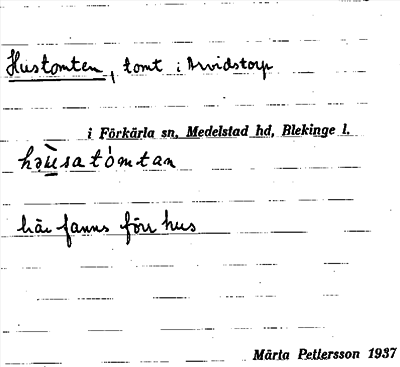 Hustomten, tomt i Arvidstorp
i Förkärla sn, Medelstad hd, Blekinge l.
hə̀usatómtan
här fanns förr hus
Märta Petersson 1937